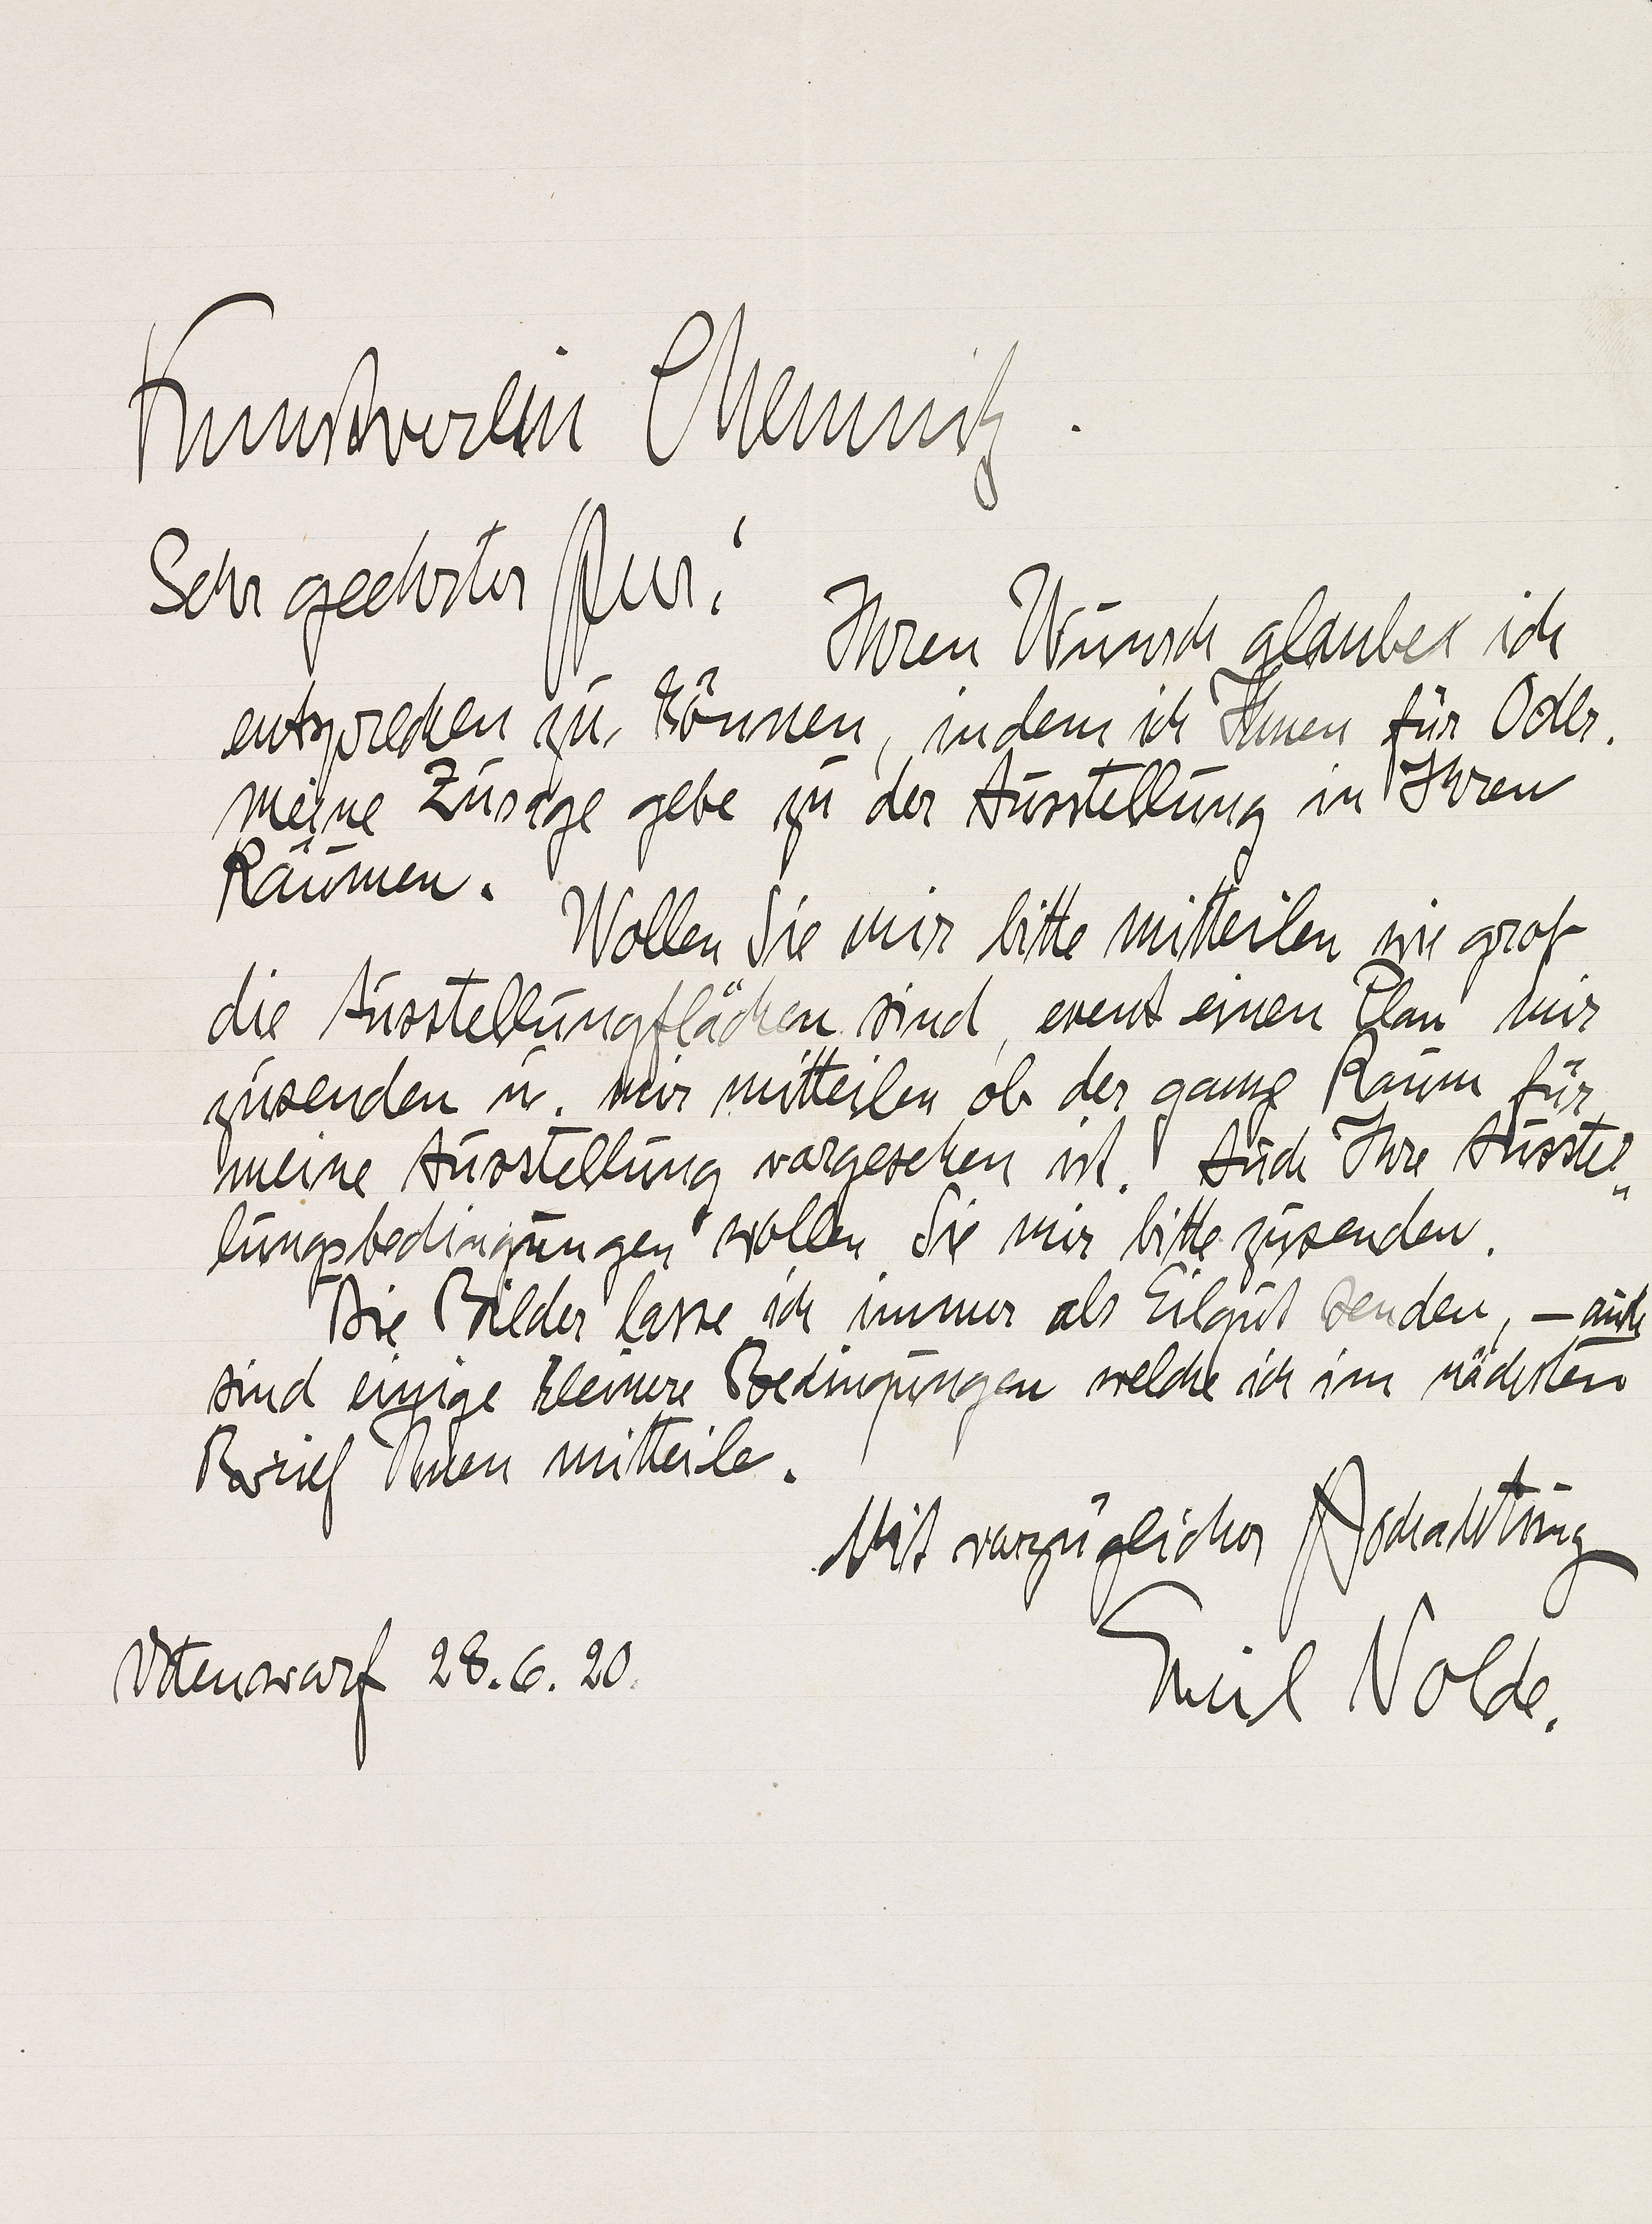 Kunstverein Chemnitz.
Sehr geehrter Herr!
Ihren Wunsch glaube ich
entsprechen zu können, indem ich Ihnen für Octbr.
meine Zusage gebe zu der Ausstellung in Ihren
Räumen.
Wollen Sie mir bitte mitteilen wie groß
die Ausstellungflächen sind, event einen Plan mir
zusenden u. mir mitteilen ob der ganze Raum für
meine Ausstellung vorgesehen ist. Auch Ihre Ausstel„
lungsbedingungen wollen Sie mir bitte zusenden.
Die Bilder lasse ich immer als Eilgut senden, – auch
sind einige kleinere Bedingungen welche ich im nächsten
Brief Ihnen mitteile.
Mit vorzüglicher Hochachtung
Emil Nolde.
Utenwarf 28.6.20.